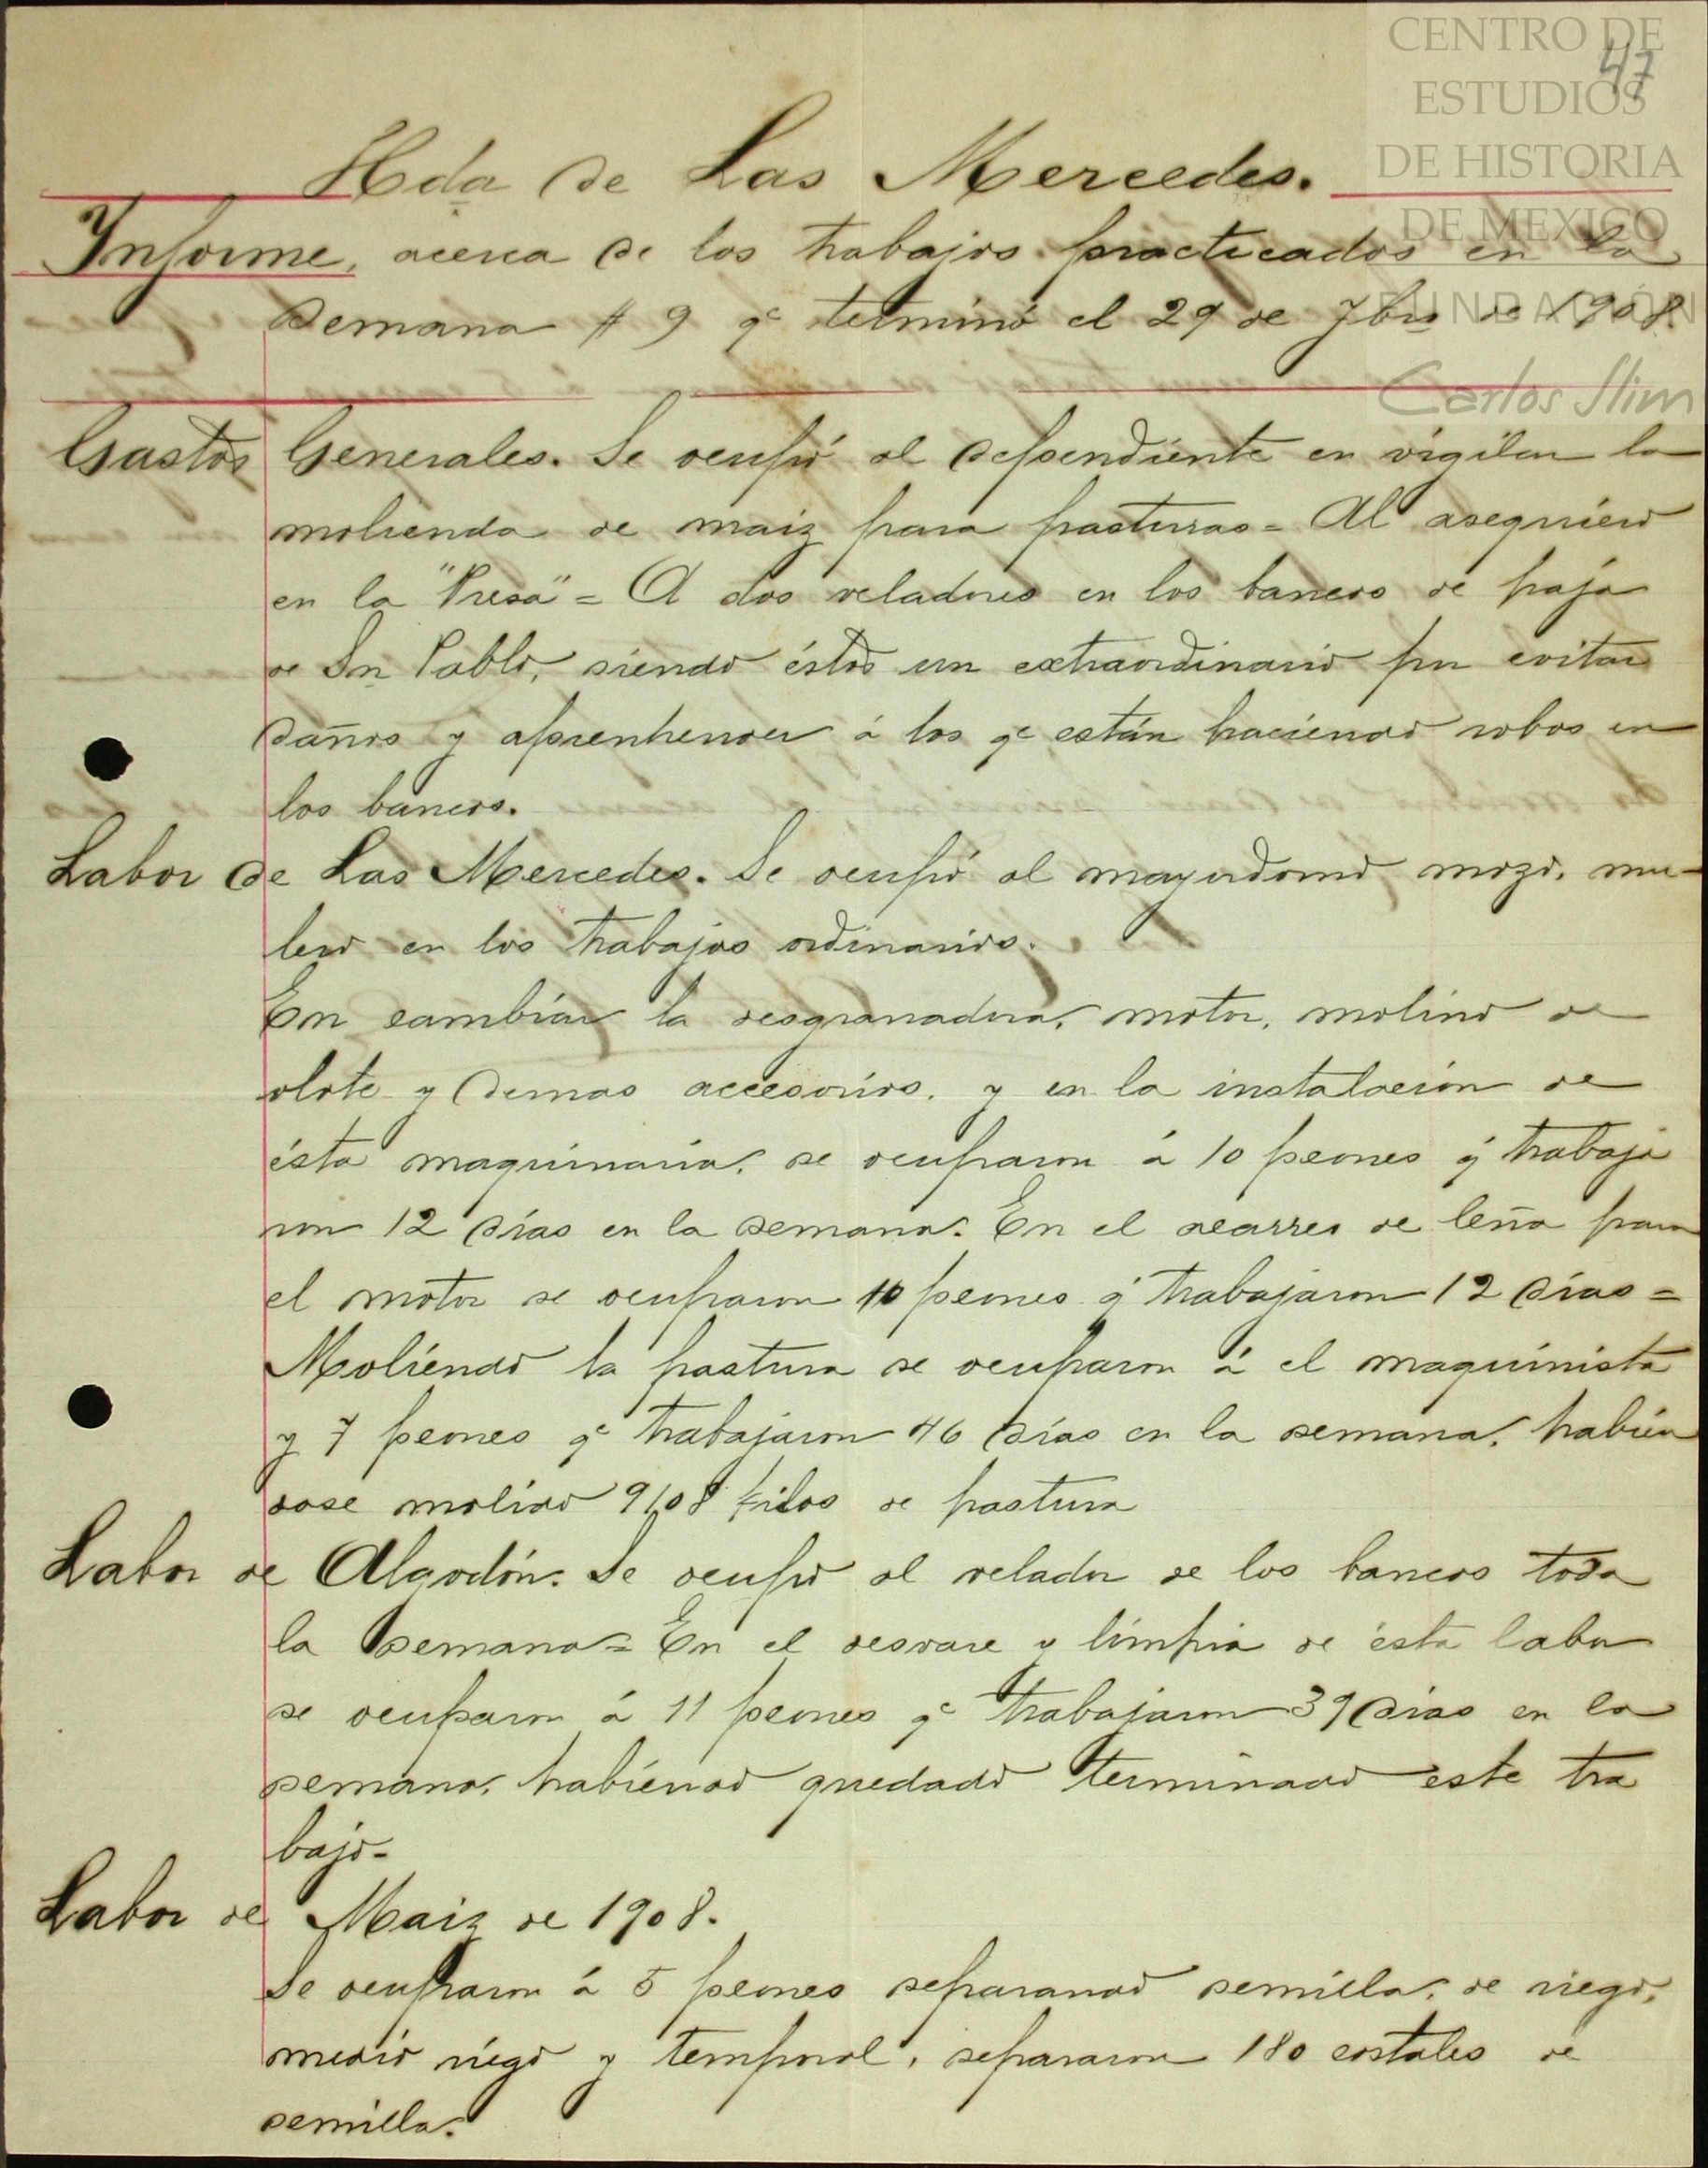 CENTRO DE
ESTUDIOS
DE HISTORIA
DE MEXICO
FUNDACIÓN
Carlos Slim
47
Hda de Las Mercedes.
Informe, acerca de los trabajos practicados en la
semana # 9 qe terminó el 29 de 7bre de 1908.
Gastos Generales. Se ocupó al dependiente en vigilar la
molienda de maiz para pasturas = Al
en la "Presa" = A dos veladores en los de paja
de Sn Pablo, siendo éstos un extraordinario pr evitar
daños y aprenhender á los qe están haciendo robos en
los
Labor de Las Mercedes. Se ocupó al mayordomo, mozo, mu-
lero en los trabajos ordinarios.
En cambiar la desgranadora, motor, molino de
olote y demas accesorios, y en la instalación de
ésta maquinaria, se ocuparon á 10 peones q' trabaja
ron 12 días en la semana. En el acarreo de leña para
el motor se ocuparon 10 peones q' trabajaron 12 días =
Moliendo la pastura se ocuparon á el maquinista
y 7 peones qe trabajaron 46 días en la semana, habien
dose molido 9108 kilos de pastura
Labor de Se ocupó al velador de los toda
la semana = En el y limpia de ésta labor
se ocuparon á 11 peones qe trabajaron 39 días en la
semana, habiendo quedado terminado este tra
bajo-
Labor de Maiz de 1908.
Se ocuparon á 5 peones separando semilla, de riego,
medio riego y temporal, separaron 180 costales de
semilla.